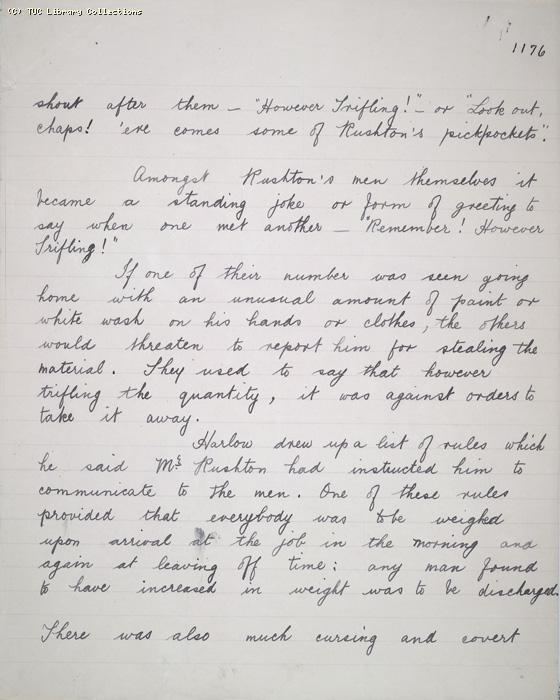 (C) TUC Library Collections
1176
shout after them — "However Trifling!" — or "Look out,
chaps! 'ere comes some of Rushton's pickpockets".
Amongst Rushton's men themselves it
became a standing joke or form of greeting to
say when one met another — "Remember! However
Trifling!"
If one of their number was seen going
home with an unusual amount of paint or
white wash on his hands or clothes, the others
would threaten to report him for stealing the
material. They used to say that however
trifling the quantity, it was against orders to
take it away.
Harlow drew up a list of rules which
he said Mr Rushton had instructed him to
communicate to the men. One of these rules
provided that everybody was to be weighed
upon arrival at the job in the morning and
again at leaving off time: any man found
to have increased in weight was to be discharged.
There was also much cursing and covert